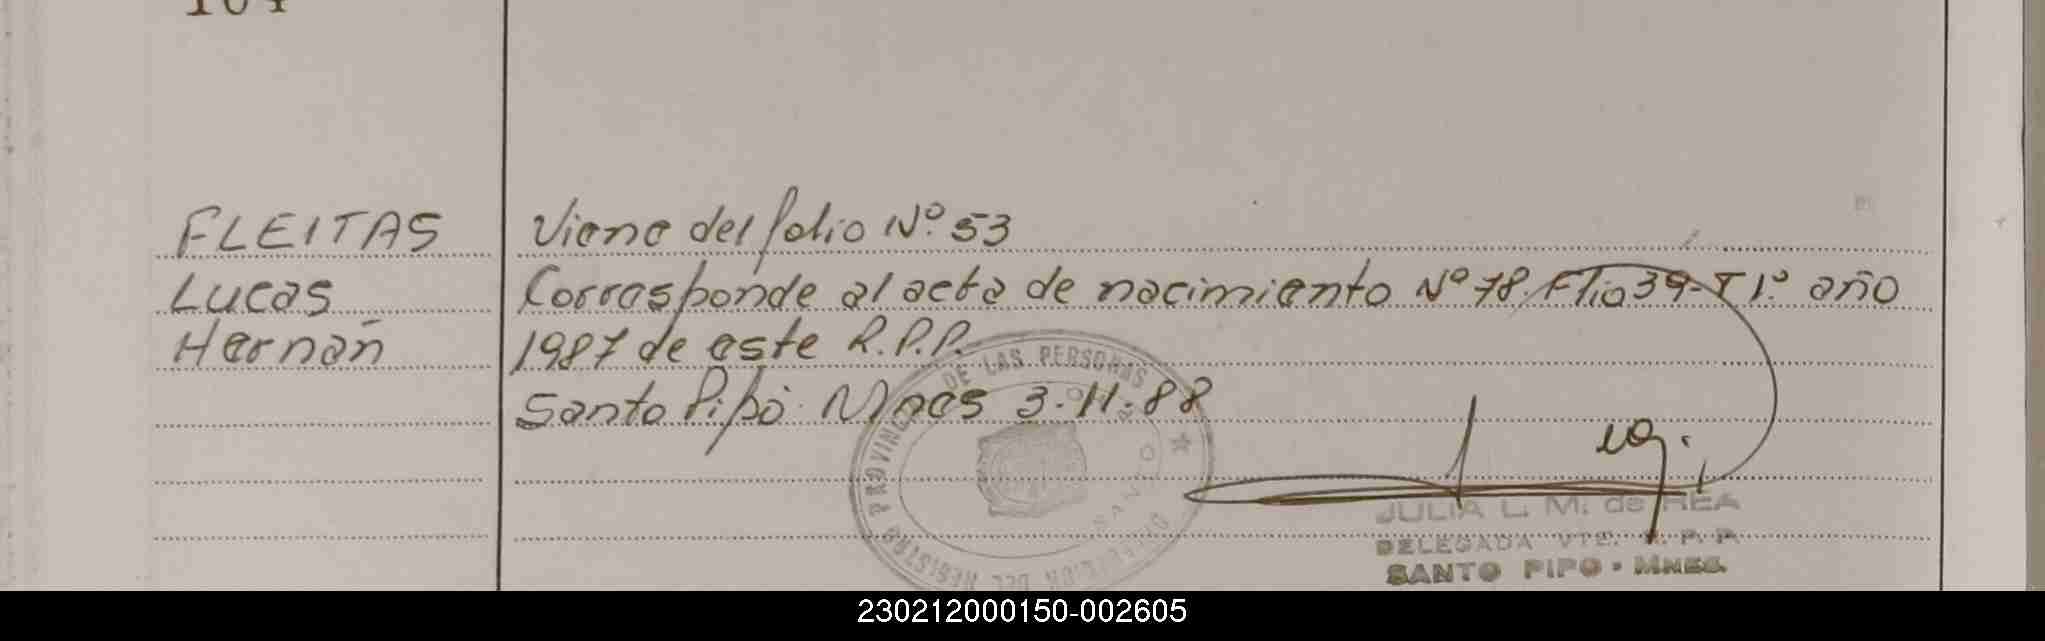 104
FLEITAS
Lucas
Hernán
Viene del folio Nº 53
Corresponde al acta de nacimiento Nº 78. Flio 39-T 1º año
1987 de este R.P.P.
Santo Pipó. Mnes 3-11-88
DIRECCION DEL REGISTRO PROVINCIAL DE LAS PERSONAS
SANTO
JULIA L. M. de REA
DELEGADA VTE. R. P. P.
SANTO PIPO - MNES.
230212000150-002605